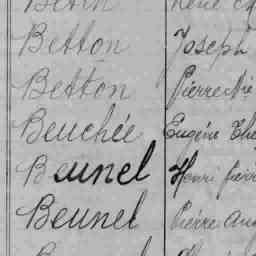 Betton Joseph
Betton Pierre
Beuchée Eugène
Beunel Henri
Beunel Pierre